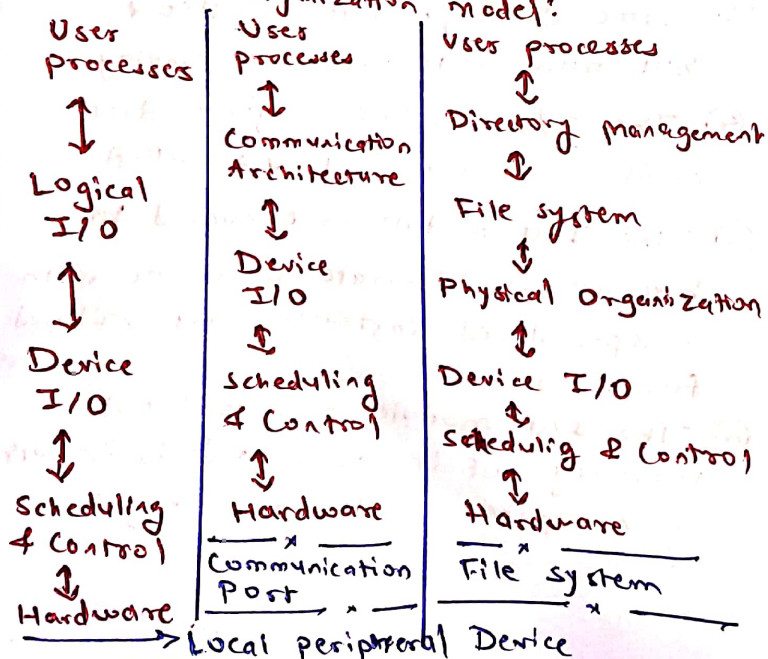 model:
User
processes
Logical
I/O
Device
I/O
Scheduling
& Control
Hardware
User
processes
Communication
Architecture
Device
I/O
Scheduling
& Control
Hardware
Communication
Port
User processes
Directory management
File system
Physical Organization
Device I/O
Schedulig & Control
Hardware
File system
Local peripheral Device